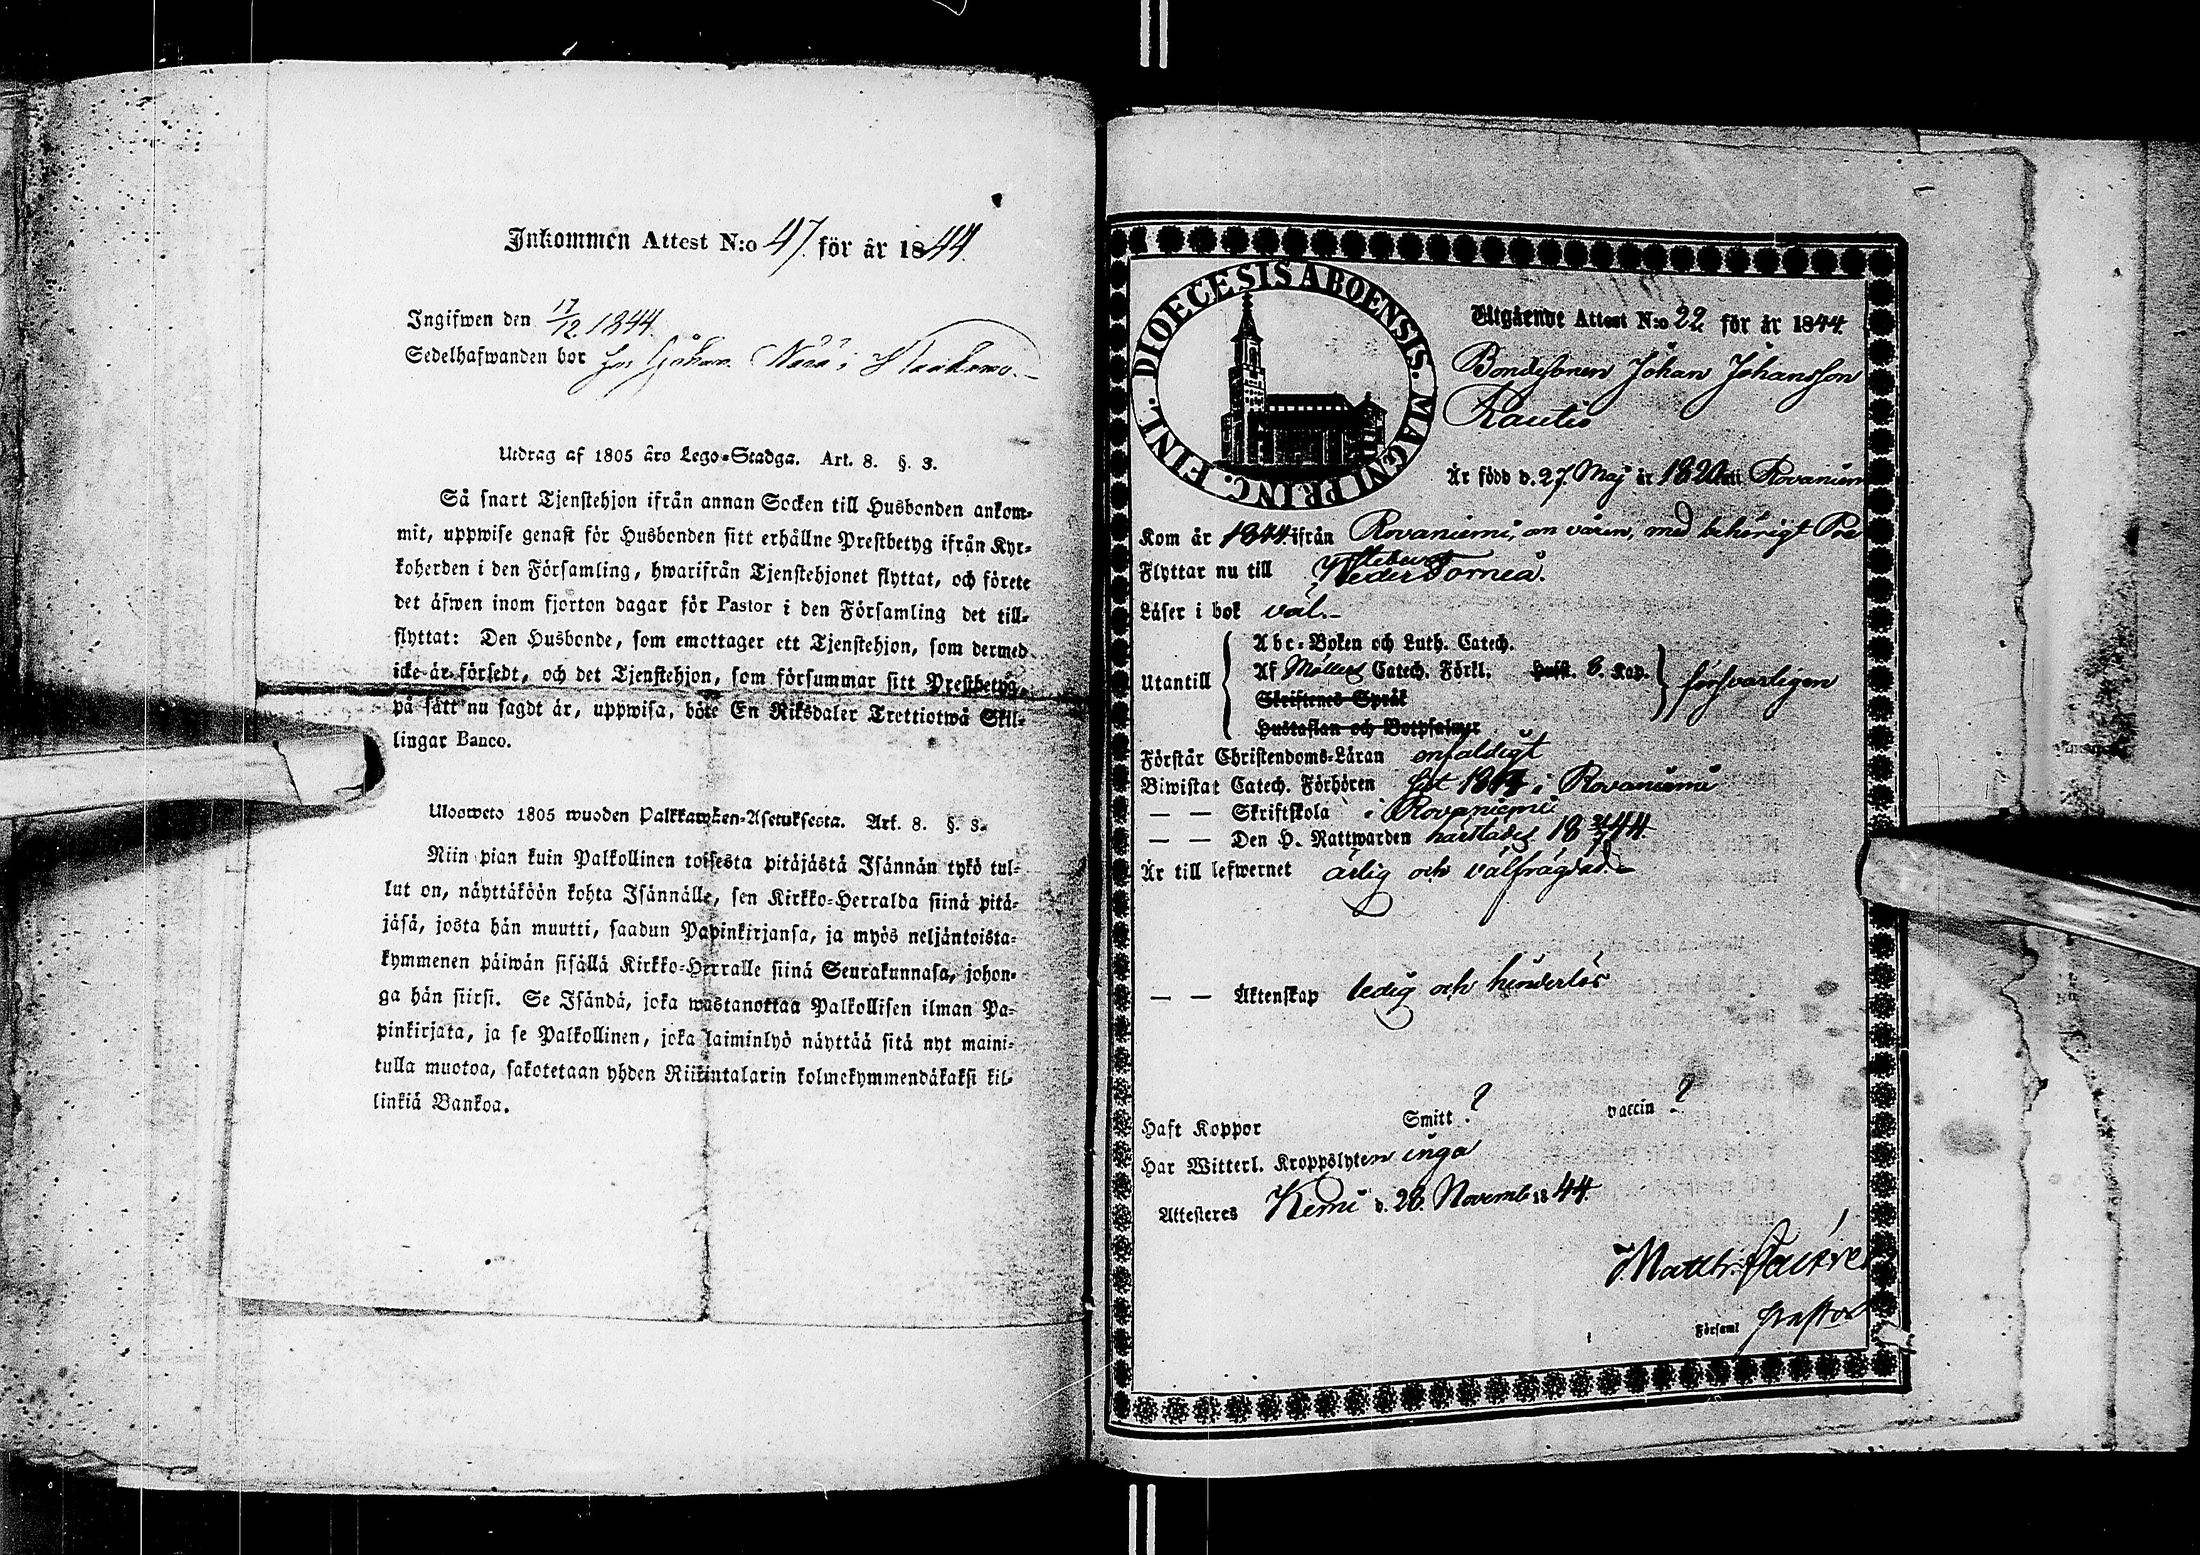 Inkommen Attest N:o 47. för år 1844.
Ingifwen den 17/12 1844.
Sedelhafwanden bor hos
Utdrag af 1805 års Lego-Stadga. Art. 8. §. 3.
Så snart Tjenstehjon ifrån annan Socken till Husbonden ankom-
mit, uppwise genast för Husbonden sitt erhållne Prestbetyg ifrån Kyr-
koherden i den Församling, hwarifrån Tjenstehjonet flyttat, och förete
det äfwen inom fjorton dagar för Pastor i den Församling det till-
flyttat: Den Husbonde, som emottager ett Tjenstehjon, som dermed
icke är försedt, och det Tjenstehjon, som försummar sitt Prestbetyg,
på sätt nu sagdt är, uppwisa, böte En Riksdaler Trettiotwå Skil-
lingar Banco.
Ulosweto 1805 wuoden Palkkawäen-Asetuksesta. Art. 8. §. 3.
Niin pian kuin Palkollinen toisesta pitäjästä Isännän tykö tul-
lut on, näyttäköön kohta Isännälle, sen Kirkko-Herralda siinä pitä-
jäsä, josta hän muutti, saadun Papinkirjansa, ja myös neljäntoista-
kymmenen päiwän sisällä Kirkko-Herralle siinä Seurakunnasa, johon-
ga hän siirsi. Se Isändä, joka wastanottaa Palkollisen ilman Pa-
pinkirjata, ja se Palkollinen, joka laiminlyö näyttää sitä nyt maini-
tulla muotoa, sakotetaan yhden Riikintalarin kolmekymmendäkaksi kil-
linkiä Bankoa.
DIOECESIS ABOENSIS. MAGNI PRINC. FINL.
Utgående Attest N:o 22. för år 1844.
Bondesonen Johan Johansson
Rautio
Är född d. 27 Maj år 1820 uti Rovaniemi
Kom år 1844 ifrån Rovaniemi, om våren, med behörigt Pre
stebevis
Flyttar nu till Neder Torneå.
Läser i bok väl.
Utantill
Abc-Boken och Luth. Catech.
Af Möllers Catech. Förkl. Hust. 8. Kap.
Skriftenes Språk
Hustaflan och Botpsalmer
försvarligen
Förstår Christendoms-Läran enfaldigt
Biwistat Catech. Förhören sist 1844 i Rovaniemi
— — Skriftskola i Rovaniemi
— — Den H. Nattwarden härstädes 1844
Är till lefwernet ärlig och välfrägdad.
— — Äktenskap ledig och hinderlös
Haft Koppor Smitt ? vaccin ?
Har Witterl. Kroppslyten inga
Attesteres Kemi d. 28. Novemb 1844.
Matth.
Församl Pastor